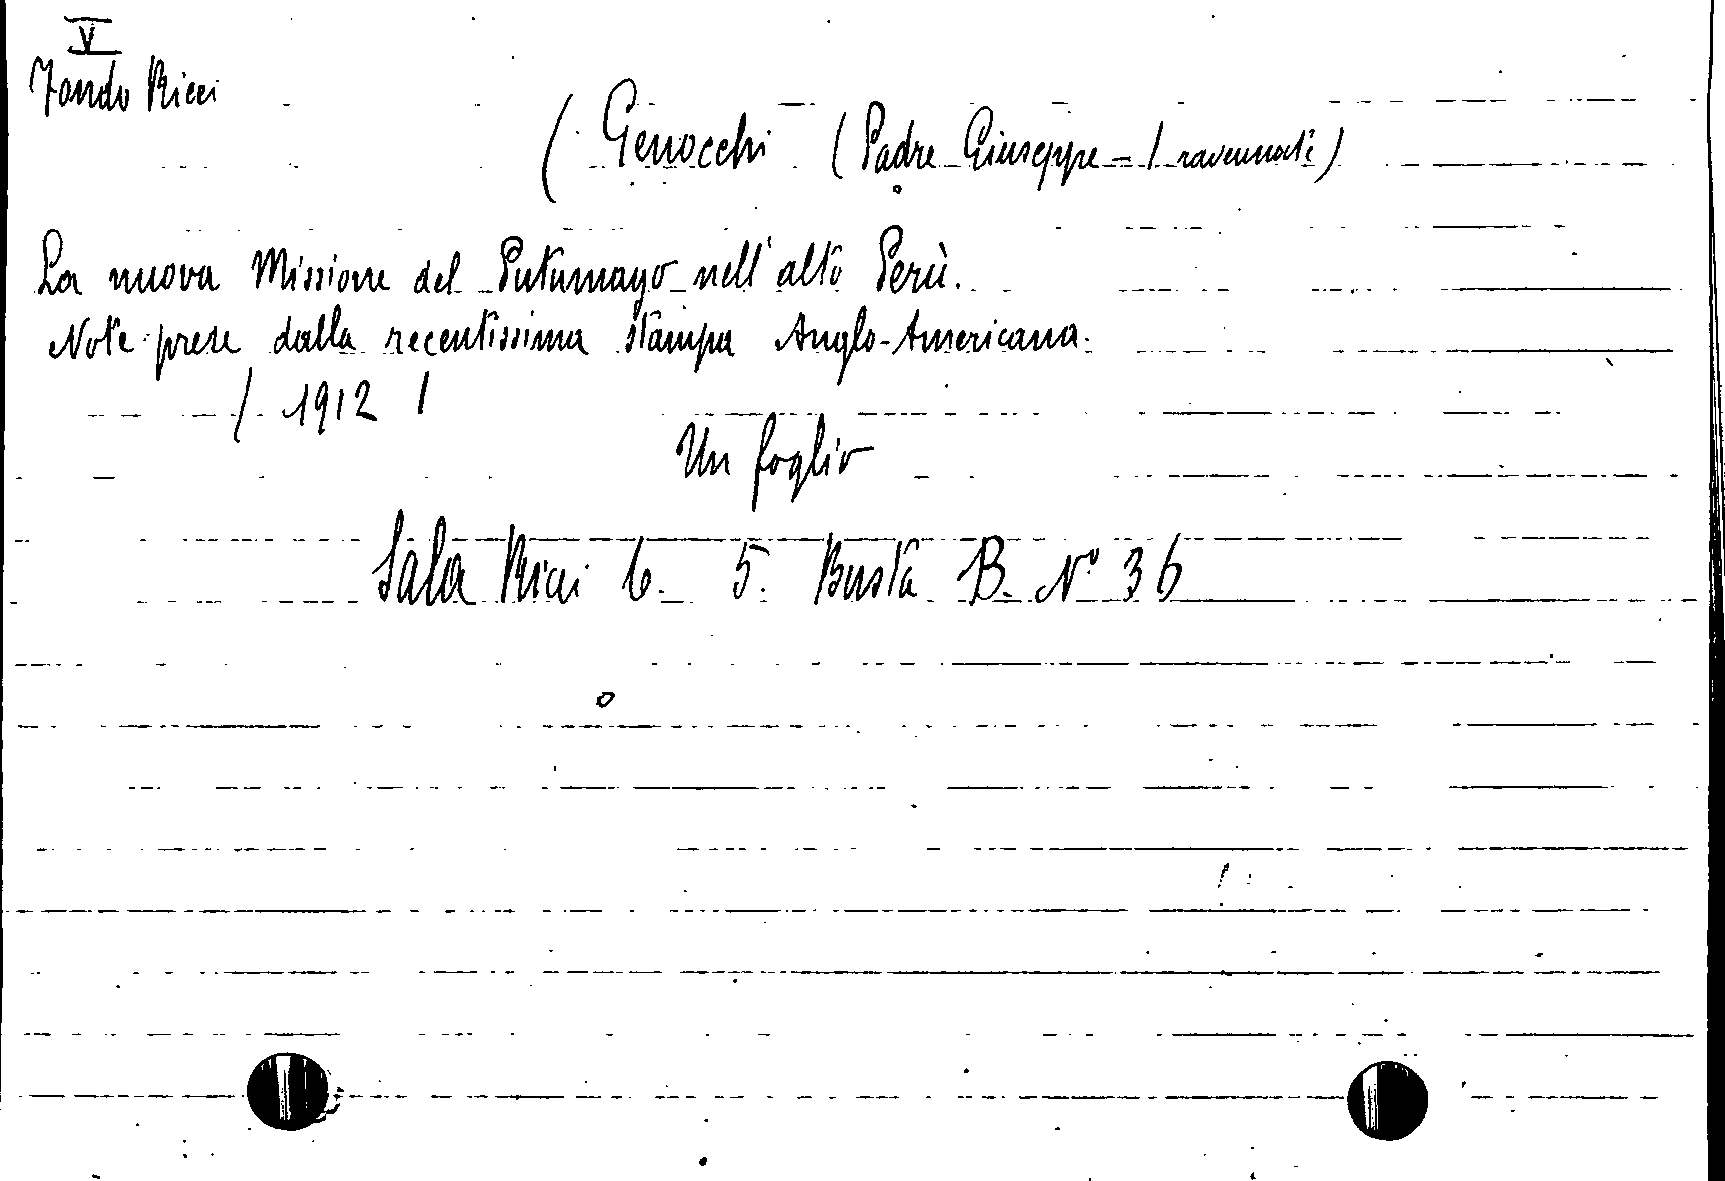 V
Fondo Ricci
( Genocchi (Padre Giuseppe - / ravennate)
La nuova Missione del Putumayo nell'alto Perù.
Note prese dalla recentissima stampa Anglo-Americana.
/ 1912 /
Un foglio
Sala Ricci 6. 5. Busta B. N° 36